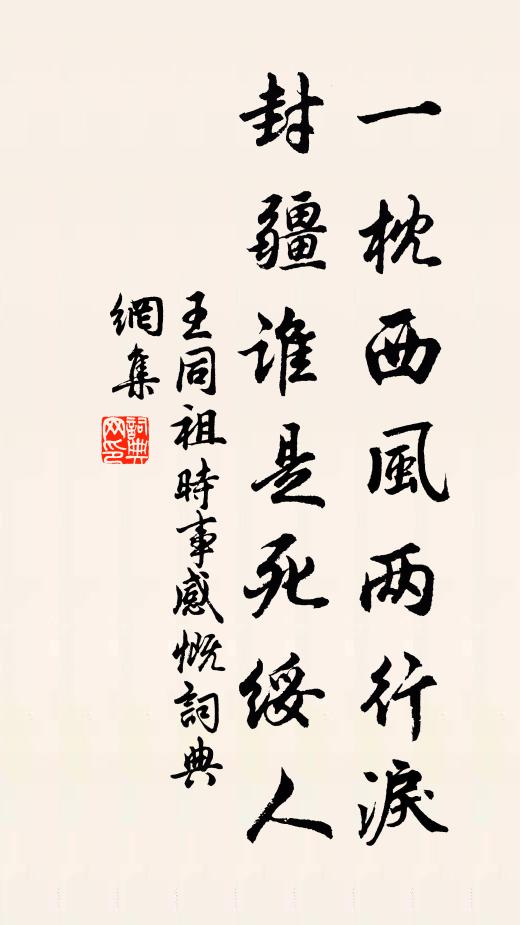 一枕西風两行淚
封疆谁是死綏人
王同祖時事感慨詞典
網集
詞典网印